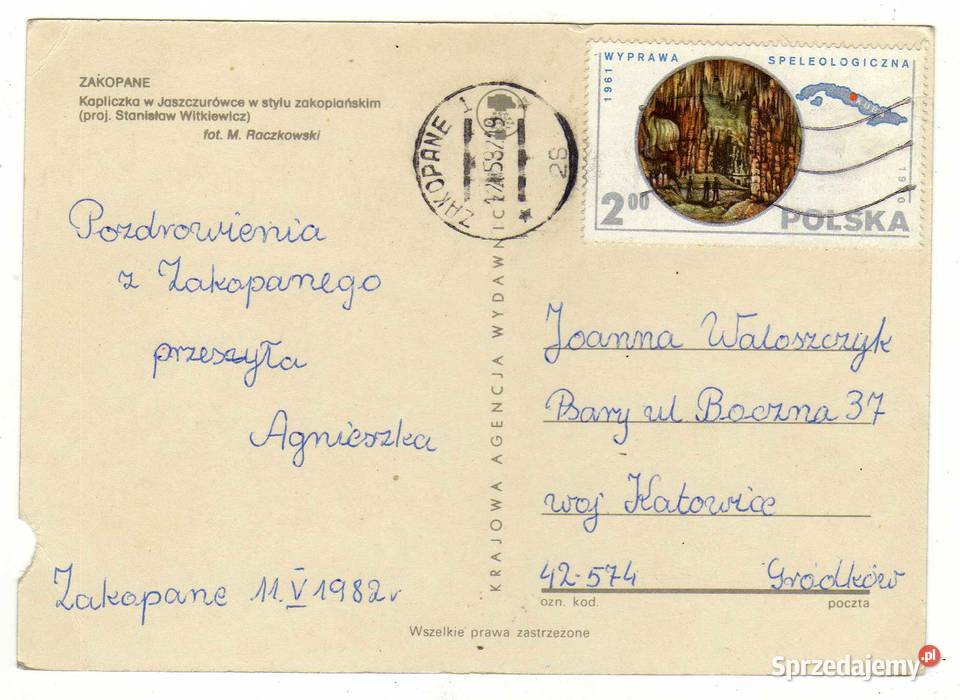 ZAKOPANE
Kapliczka w Jaszczurówce w stylu zakopiańskim
(proj. Stanisław Witkiewicz)
fot. M. Raczkowski
Pozdrowienia
z Zakopanego
przeszyła
Agnieszka
Zakopane 11.V 1982 r
KRAJOWA AGENCJA WYDAWNIC
ZAKOPANE 1
1961 WYPRAWA SPELEOLOGICZNA
KUBA
200 POLSKA
Joanna Waloszczyk
Bary ul Boczna 37
woj Katowice
42-574 Gródków
ozn. kod. poczta
Wszelkie prawa zastrzeżone
Sprzedajemy.pl